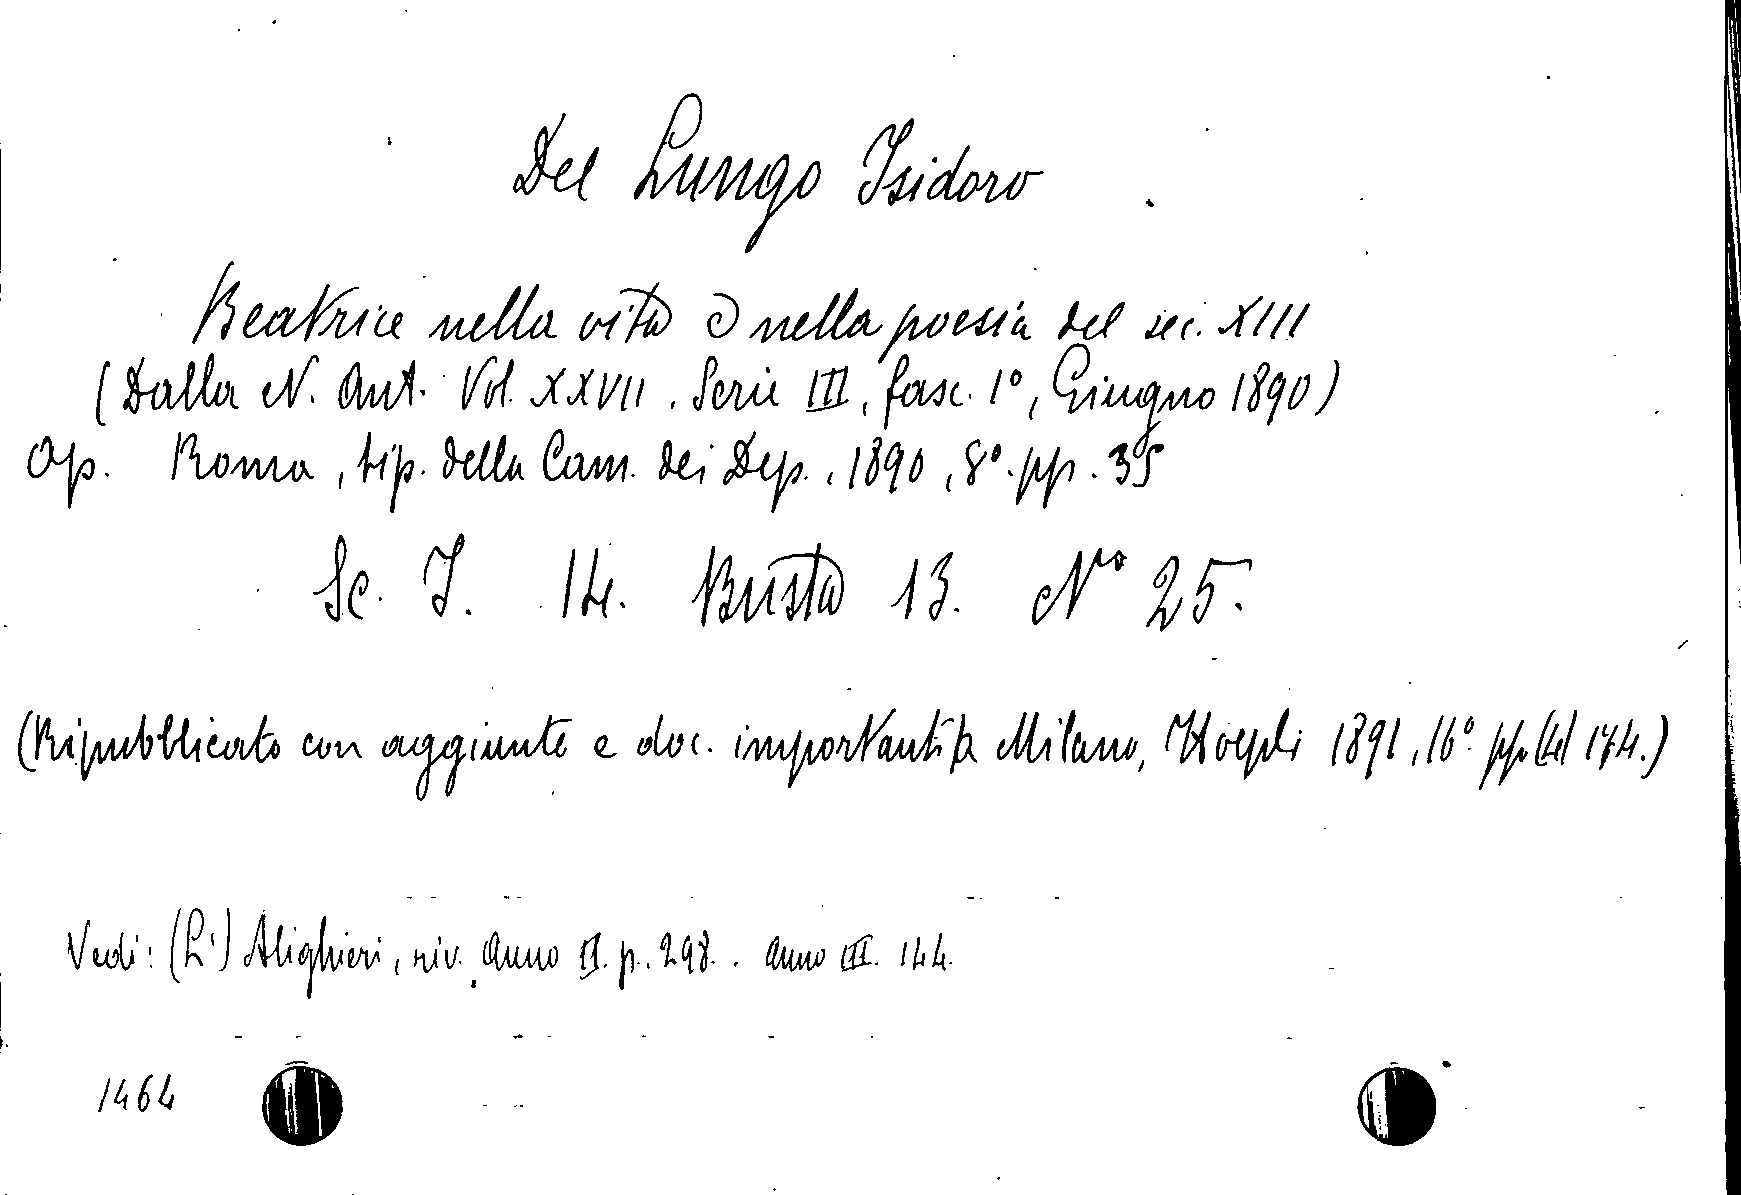 Del Lungo Isidoro
Beatrice nella vita e nella poesia del sec. XIII
(Dalla N. Ant. Vol. XXVII. Serie III, fasc. 1°, Giugno 1890)
Op. Roma, tip. della Cam. dei Dep., 1890, 8°. pp. 35
Sc. I. 14. Busta 13. N° 25.
(Ripubblicato con aggiunte e doc. importanti Milano, Hoepli 1891, 16° pp. (4) 174.)
Vedi: (L') Alighieri, riv. Anno II. p. 298. Anno III. 144.
1464